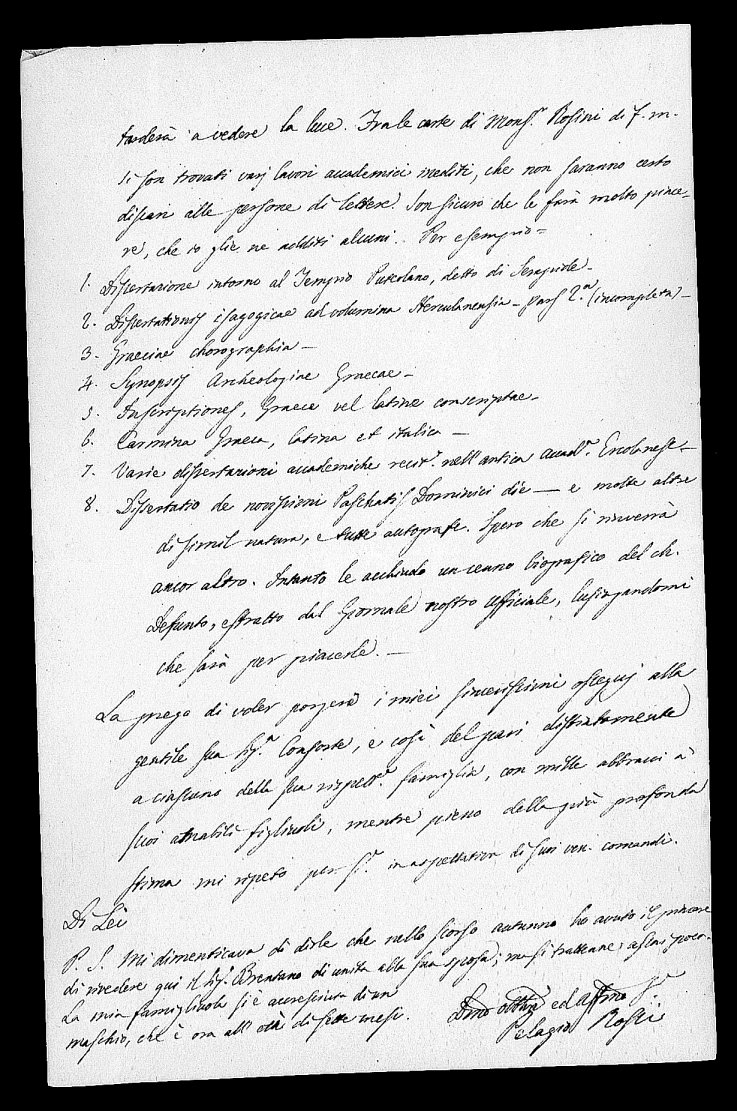 tarderà a vedere la luce. Fra le carte di Monsr. Rosini di f. m.
si son trovati varj lavori accademici inediti, che non saranno certo
discari alle persone di lettere. Son sicuro che le farà molto piace-
re, che io glie ne additi alcuni. Per esempio=
1. Dissertazione intorno al Tempio Puteolano, detto di Serapide_
2. Dissertationis isagogicae ad volumina Herculanensia_ Pars 2.a (incompleta)_
3. Graeciae chorographia_
4. Synopsis Archeologiae Graecae_
5. Inscriptiones, Graece vel latine conscriptae_
6. Carmina Graeca, latina et italica_
7. Varie dissertazioni accademiche recit.e nell'antica accad.a Ercolanese_
8. Dissertatio de Paschatis Dominici die_ e molte altre
di simil natura, e tutte autografe. Spero che si rinverrà
ancor altro. Intanto le acchiudo un cenno biografico del ch.
Defunto, estratto dal Giornale nostro Uffiziale, lusingandomi
che sarà per piacerle._
La prego di voler porgere i miei sincerissimi ossequj alla
gentile sua Sig.a Consorte, e così del pari distintamente
a ciascuno della sua rispett.e famiglia, con mille abbracci a'
suoi amabili figliuoli, mentre pieno della più profonda
stima mi ripeto per s.e in aspettativa di suoi ven. comandi.
Di Lei
P. S. Mi dimenticava di dirle che nello scorso autunno ho avuto il piacere
di rivedere qui il Sig. Brentano di unita alla sua sposa; ma si trattenne assai poco.
La mia famigliuola si è accresciuta di un
maschio, che è ora all'età di sette mesi.
Dmo obblmo ed affmo
Pelagio Rossi